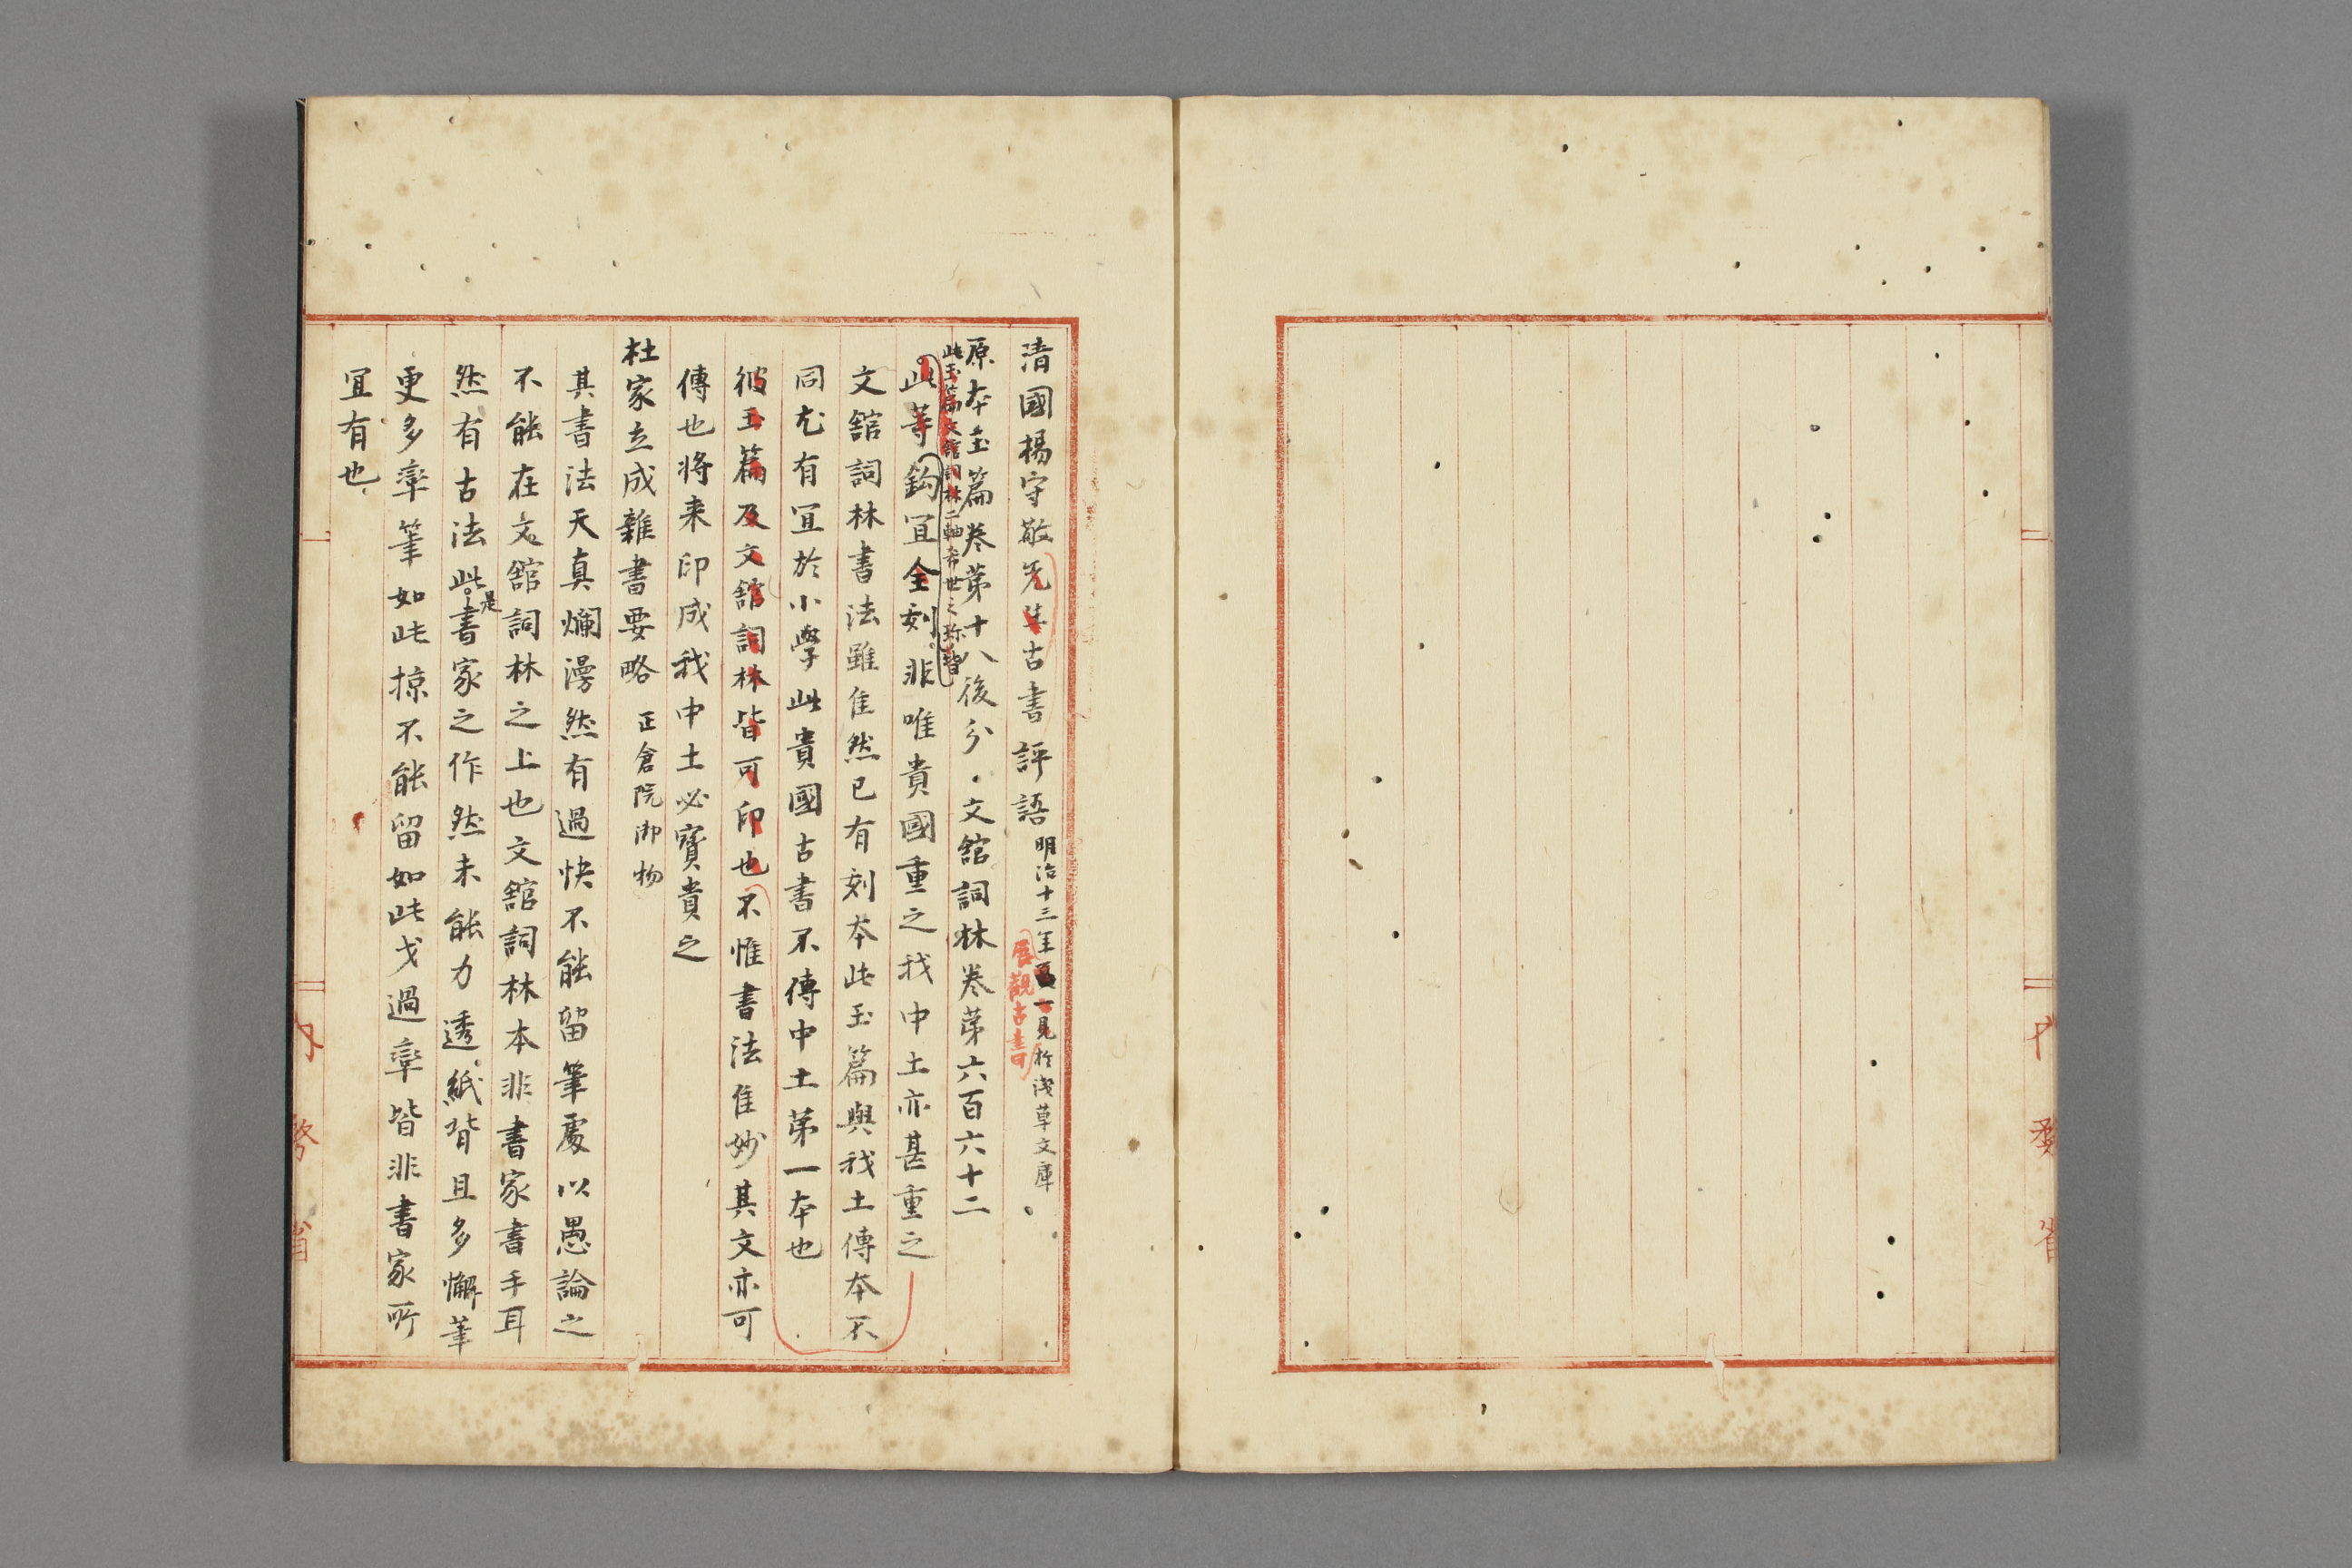 清國楊守敬先生古書評語 明治十三年一見於浅草文庫
展觀古書
原本玉篇卷第十八後分・文舘詞林卷第六百六十二
此玉篇文舘詞林二軸希世之珎皆
此等鈎冝全刻非唯貴國重之我中土亦甚重之
文舘詞林書法雖佳然已有刻本此玉篇與我土傳本不
同尤有冝於小學此貴國古書不傳中土第一本也
彼玉篇及文舘詞林皆可印也不惟書法佳妙其文亦可
傳也将来印成我中土必寳貴之
杜家立成雜書要略 正倉院御物
其書法天真爛漫然有過快不能留筆處以愚論之
不能在文舘詞林之上也文舘詞林本非書家書手耳
然有古法此是書家之作然未能力透紙背且多懈筆
更多率筆如此掠不能留如此戈過率皆非書家所
冝有也
内務省
内務省